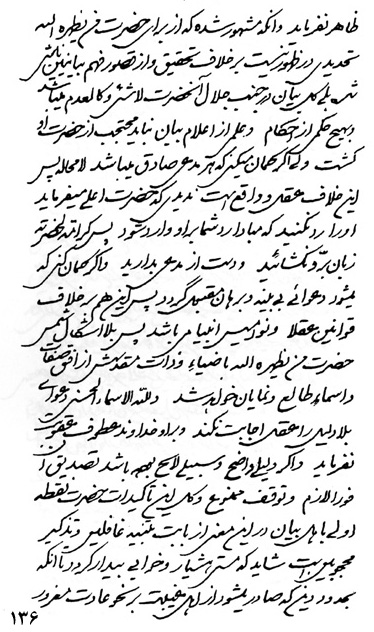 ظاهر نفرماید وانکه مشهور شده که از برای حضرت من یظهره الله
تحدیدی در ظهور نیست بر خلاف تحقیق و از تصور فهم بیانیین ناشی
شده بلی کل بیان در جنب جلال آنحضرت لاشئ و کالعدم میباشد
و بهیچ حکمی از احکام و علمی از اعلام بیان نباید محتجب از حضرت او
گشت ولی اگر گمان میکنی که هر مدعی صادق میباشد لا محاله پس
این خلاف عقل و واقع است ندیدی که حضرت اعلی میفرماید
او را رد نکنید که مبادا رد شما بر او وارد شود پس کمال تحضر نه
زبان برد نگشائید و دست از مدعی بدارید و اگر گمان کنی که
میشود دعوائی بی بینه و برهان مقبول گردد پس این هم بر خلاف
قوانین عقلا و نوامیس انبیا می باشد پس بلا اشکال شمس
حضرت من یظهره الله با ضیاء و ذات مقدسش از افق صفات
و اسماء طالع و نمایان خواهد شد ولله الاسماء الحسنی دعوای
بلا دلیل را عقل اجابت نکند و براه خداوند عطوف عقوبت
نفرماید و اگر دلیل واضح و سبیل لایح بوده باشد تصدیق آن
فورا لازم و توقف ممنوع و کل این تأکیدات حضرت نقطه
اولی باهل بیان در این معنی از بابت تنبیه غافلین و تذکیر
محجوبین است شاید که مستی هشیار و خوابی بیدار گردد تا آنکه
بمجرد دینی که صادر میشود از اهل غفلت بر نحو عادت مغرور
۱۳۶